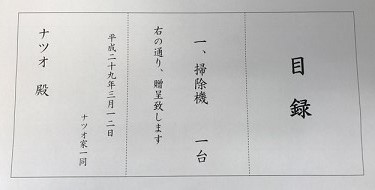 目録
一、掃除機 一台
右の通り、贈呈致します
平成二十九年三月一二日
ナツオ家一同
ナツオ 殿